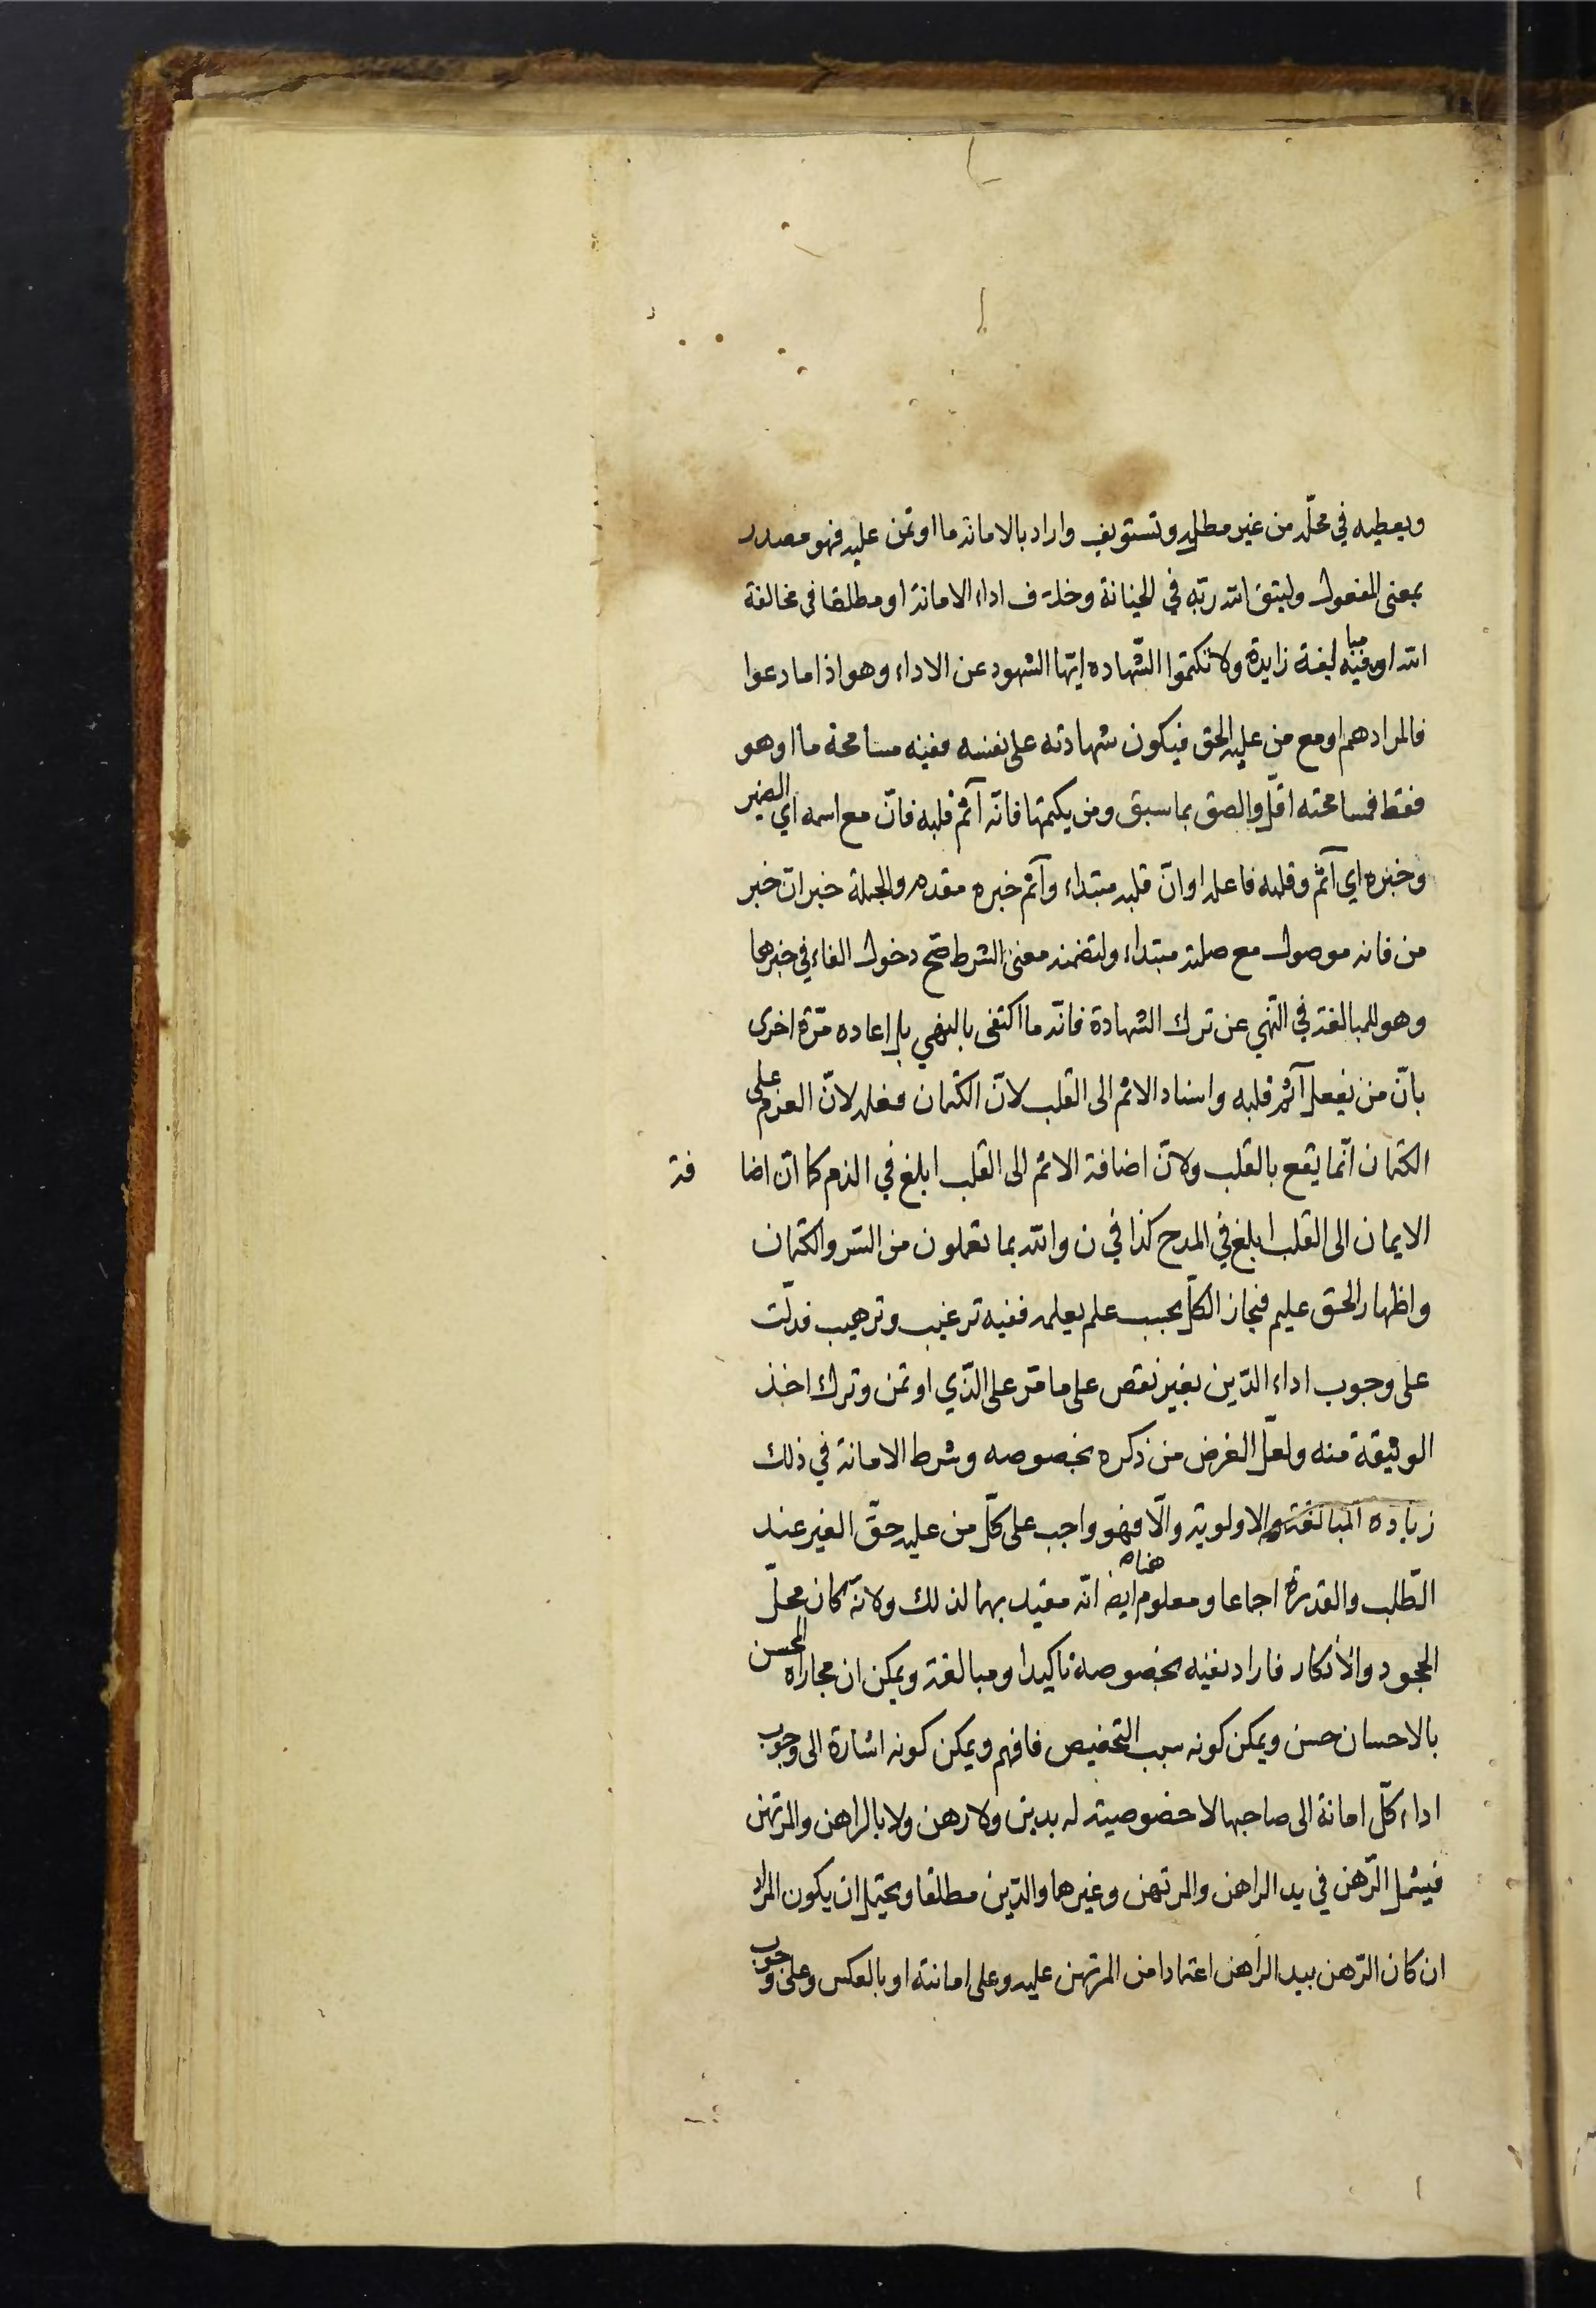 ويعطيه في محلّه من غير مطل وتسويف واراد بالامانة ما اوتمن عليه فهو مصدر
بمعنى المفعول وليتق الله ربّه في الخيانة وخلاف اداء الامانة او مطلقا في مخالفة
الله او وفيه مبا لغة زايدة ولا تكتموا الشّهاده ايّها الشهود عن الاداء وهو اذا ما دعوا
فالمراد هم او مع من عليه الحق فيكون شهادته على نفسه ففيه مسامحة ما او هو
فقط فمسامحته اقلّ والصق بما سبق ومن يكتمها فانّه آثم قلبه فانّ مع اسمه اي الضمير
وخبره اي آثم وقلبه فاعله او انّ قلبه مبتداء وآثم خبره مقدم والجملة خبر ان خبر
من فانه موصول مع صلته مبتداء ولتضمنه معنى الشرط صحّ دخول الفاء في خبرها
وهو للمبالغة في النّهي عن ترك الشهادة فانّه ما اكتفى بالنهي بل اعاده مرّة اخرى
بانّ من يفعل آثم قلبه واسناد الاثم الى القلب لانّ الكتمان فعله لانّ العزم على
الكتمان انّما يقع بالقلب ولانّ اضافة الاثم الى القلب ابلغ في الذم كما انّ اضا فة
الايمان الى القلب ابلغ في المدح كذا في ن والله بما تعملون من السّر والكتمان
واظهار الحق عليم فيجاز الكلّ بحسب علم يعلمه ففيه ترغيب وترهيب فدلّت
على وجوب اداء الدّين بغير نقص على ما مّر على الذّي اوتمن وترك اخذ
الوثيقة منه ولعلّ الغرض من ذكره بخصوصه وشرط الامانة في ذلك
زياده المبالغة والاولوية والّا فهو واجب على كلّ من عليه حقّ الغير عند
الطّلب والقدرة اجماعا ومعلوم ايض هناه انّه مقيد بهما لذلك ولانّه كان محلّ
الجحود والانكار فاراد نفيه بخصوصه تاكيدا ومبالغة ويمكن ان مجاراه المحسن
بالاحسان حسن ويمكن كونه سبب التخصيص فافهم ويمكن كونه اشارة الى وجوب
اداء كلّ امانة الى صاحبها لا خصوصيته له بدين ولا رهن ولا بالراهن والمرتهن
فيشمل الرّهن في يد الراهن والمرتهن وغيرهما والدّين مطلقا ويحتمل ان يكون المراد
ان كان الرّهن بيد الراهن اعتمادا من المرتهن عليه وعلى امانته او بالعكس وعلى وجوب